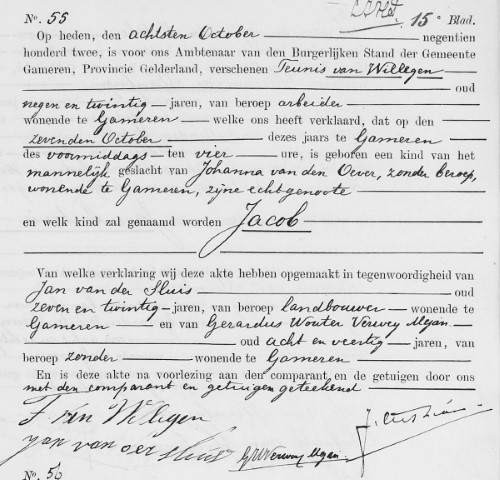 No. 55
15e Blad.
Op heden, den achtsten October negentien
honderd twee, is voor ons Ambtenaar van den Burgerlijken Stand der Gemeente
Gameren, Provincie Gelderland, verschenen Teunis van Willegen
oud
negen en twintig jaren, van beroep arbeider
wonende te Gameren welke ons heeft verklaard, dat op den
zevenden October dezes jaars te Gameren
des voormiddags ten vier ure, is geboren een kind van het
mannelijk geslacht van Johanna van den Oever, zonder beroep,
wonende te Gameren, zijne echtgenoote
en welk kind zal genaamd worden Jacob
Van welke verklaring wij deze akte hebben opgemaakt in tegenwoordigheid van
Jan van der Sluis oud
zeven en twintig jaren, van beroep landbouwer wonende te
Gameren en van Gerardus Wouter Verwey Mejan
oud acht en veertig jaren, van
beroep zonder wonende te Gameren
En is deze akte na voorlezing aan den comparant en de getuigen door ons
met den comparant en getuigen geteekend
T van Willegen
Jan van der Sluis
GW Verwey Mejan
No. 56